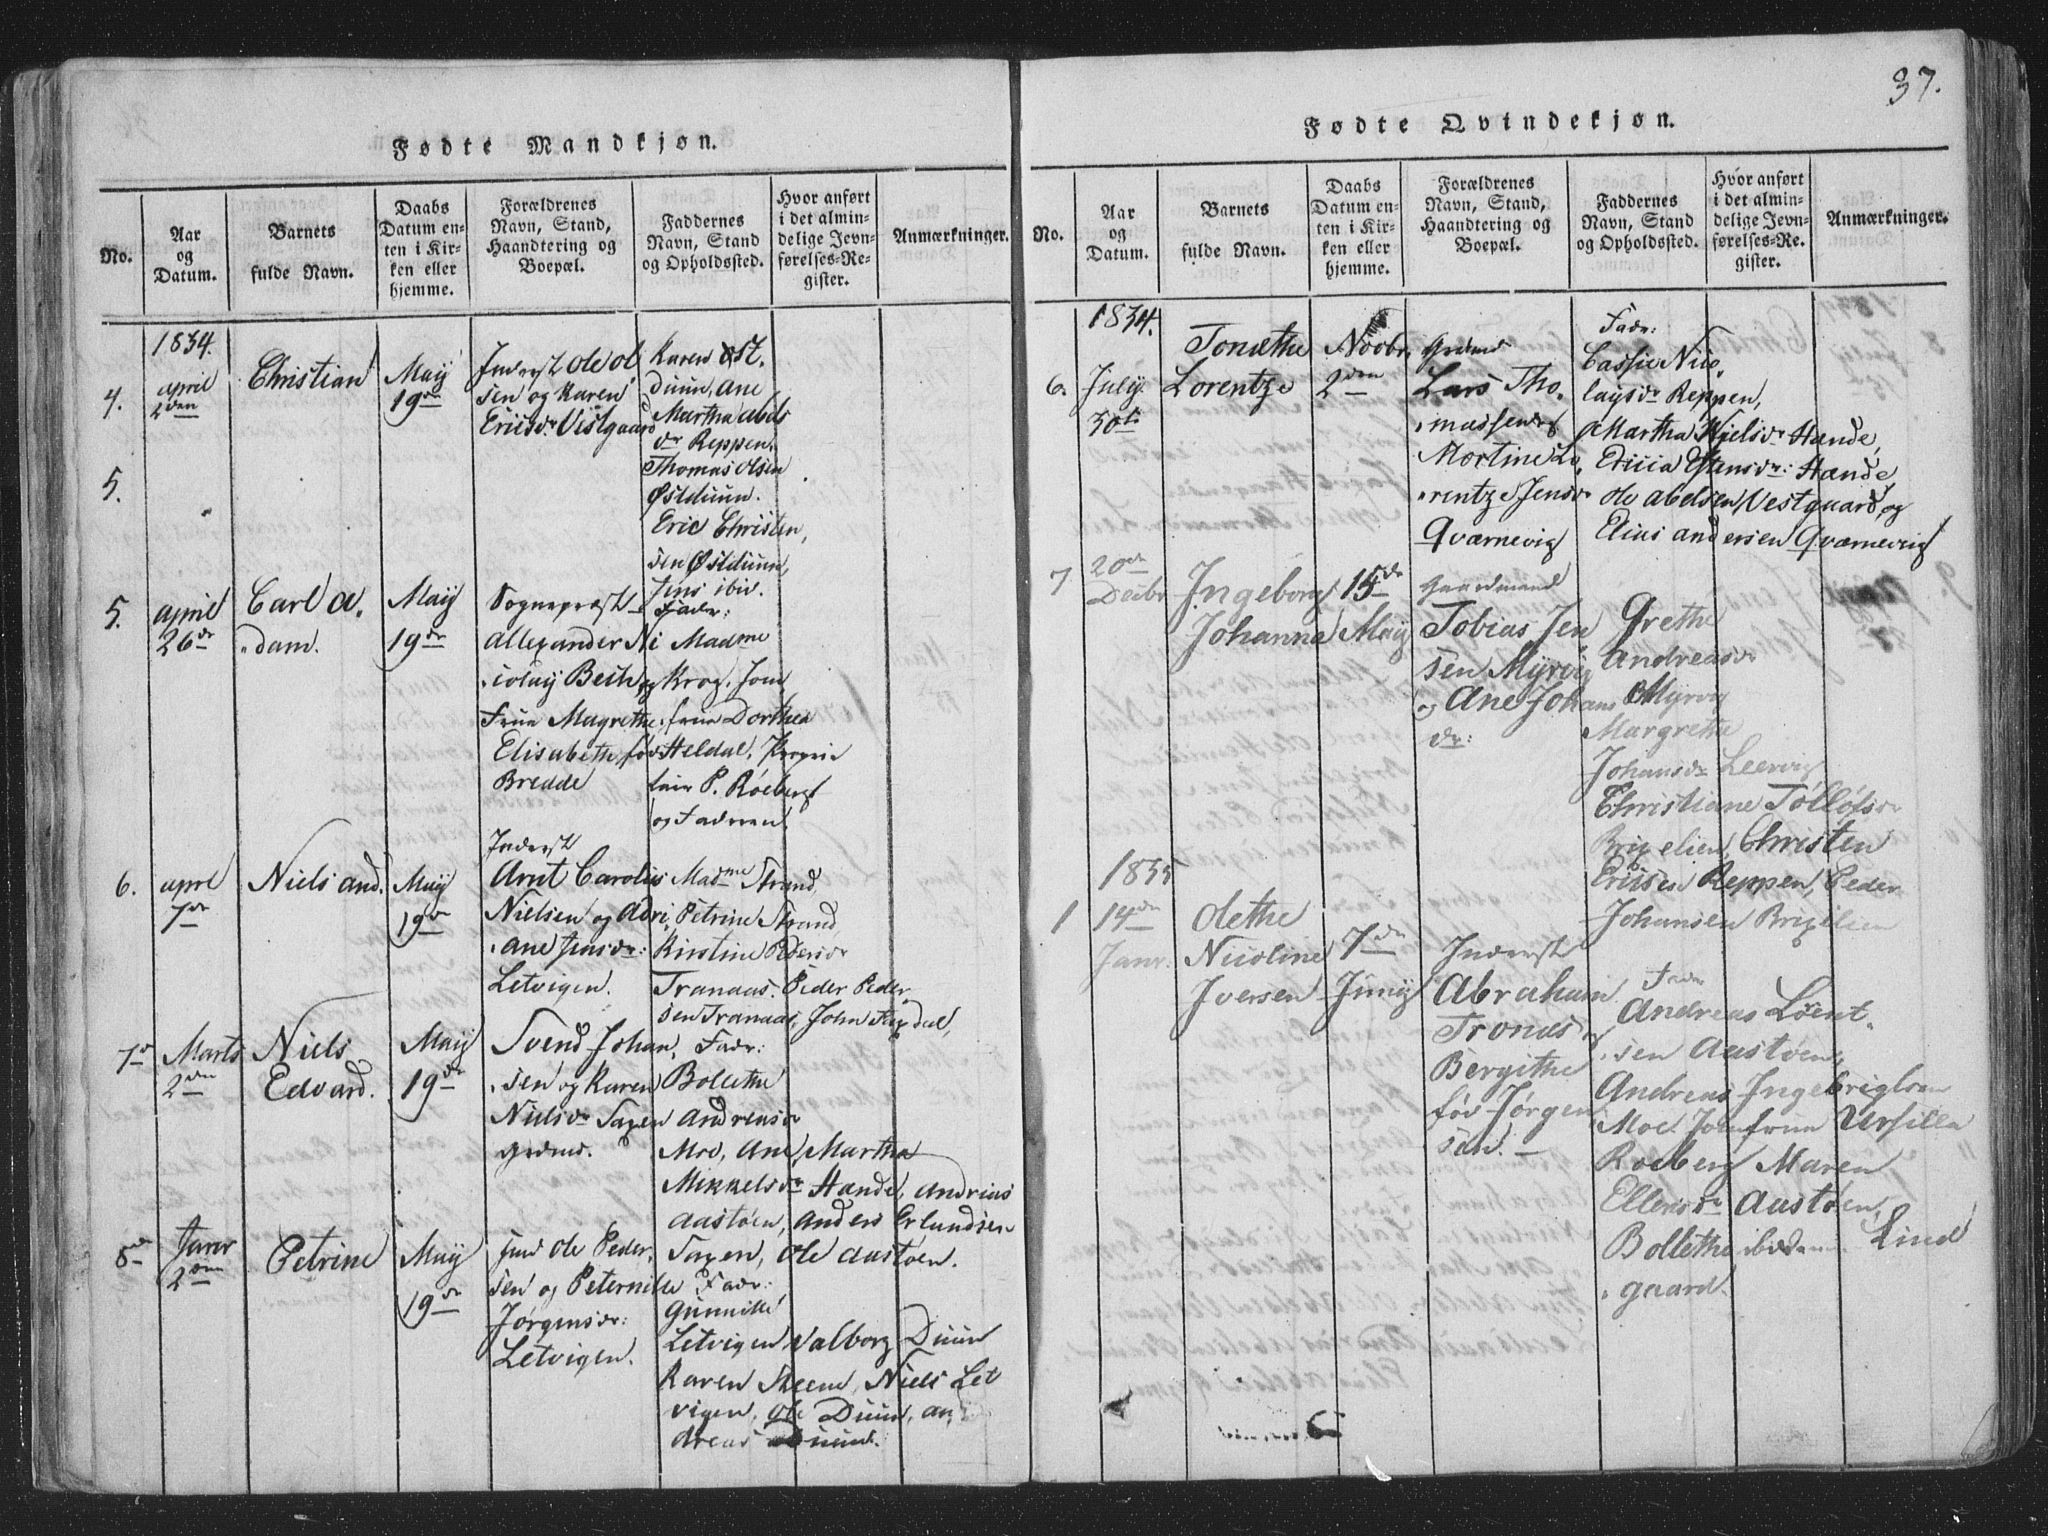 Fødte Mandkjøn.
No.
Aar
og
Datum.
Barnets
fulde Navn.
Daabs
Datum en-
ten i Kir-
ken eller
hjemme.
Forældrenes
Navn, Stand,
Haandtering og
Boepæl.
Faddernes
Navn, Stand
og Opholdssted.
Hvor anført
i det almin-
delige Jevn-
førelses-Re-
gister.
Anmærkninger.
4.
1834.
april
2den
Christian
Maij
19de
Inderst Ole ol,
sen og Karen
Ericsdr Vistgaard
Karen Øst,
duun, ane
Martha abels
dr Reppen,
Thomas olsen
Østduun.
Eric Christen,
sen Østduun,
Jens ibid.
5.
5.
april
26de
Carl a,
dam.
Maij
19de
Sogneprest
allexander Ni
colaij Beth og
Frue Magrethe
Elisabeth, fød
Bredde
Fadr:
Madme
Krog, Jom
frue Dorthea
Heldal,
P. Röeberg
og Faderen.
6.
aprl
7de
Niels and.
Maij
19de
Inderst
Arnt Carolius
Nielsen og Adri,
ane Jensdr:
Letvigen.
Madme Strand,
Petrine Strand,
Kirstine Pedersdr
Tranaas. Peder Peder,
sen Tranaas, John
7de
Marts
2den
Niels
Edvard.
Maij
19de
Svend Johan,
sen og Karen
Nielsdr Saxen
grdmd.
Fadr:
Bollethe
andreasdr
Moe, Ane Martha
Mikkelsdr Hande, andreas
aastöen, anders Erlundsen
Saxen, Ole aastöen.
8de
Janr
2den
Petrine
Maij
19de
Ole Peder,
sen og Peternille
Jørgensdr:
Letvigen.
Fadr:
Gunnille
Letvigen Valborg Duun
Karen Skeene, Niels Let
vigen, Ole Duun, an,
dreas Duun.
37.
Fødte Qvindekjøn.
No.
Aar
og
Datum.
Barnets
fulde Navn.
Daabs
Datum en-
ten i Kir-
ken eller
hjemme.
Forældrenes
Navn, Stand,
Haandtering og
Boepæl.
Faddernes
Navn, Stand
og Opholdssted.
Hvor anført
i det almin-
delige Jevn-
førelses-Re-
gister.
Anmærkninger.
6.
1834.
Julij
30te
Tonethe
Lorentze
Novbr,
2den
grdmd
Lars Tho,
massen og
Martine Lo,
rentze Jensdr
Qværnevig
Fadr:
Cassie Nico,
laysdr Reppen,
Martha Kjelsdr Hande,
Ericia Estensdr: Hande,
ole abelsen Vestgaard, og
Elias andersen Qværnevig
7
20de
Decbr
Ingeborg
Johanna
15de
Maij
Gaardmand
Tobias Jen
sen Myrvig
og Ane Johans
dr:
Grethe
Andreasdr
Myrvig
Margrethe
Johansdr Leervig
Christiane Tollöfsdr
Brixelien, Christen
Ericsen Reppen, Peder
Johansen Brixelien
1
1835
14de
Janr.
Olethe
Nicoline
Iversen
7de
Junij
Inderst
Abraham
Tronæs og
Bergithe
fød Jørgen
sen.
Fadr
Andreas Löent,
sen Aastöen,
Andreas Ingebrigtsen
Moe. Jomfrue Ursilla
Roeberg Maren
Ellersdr Aastöen,
Bollethe ibidem Lind
gaard.